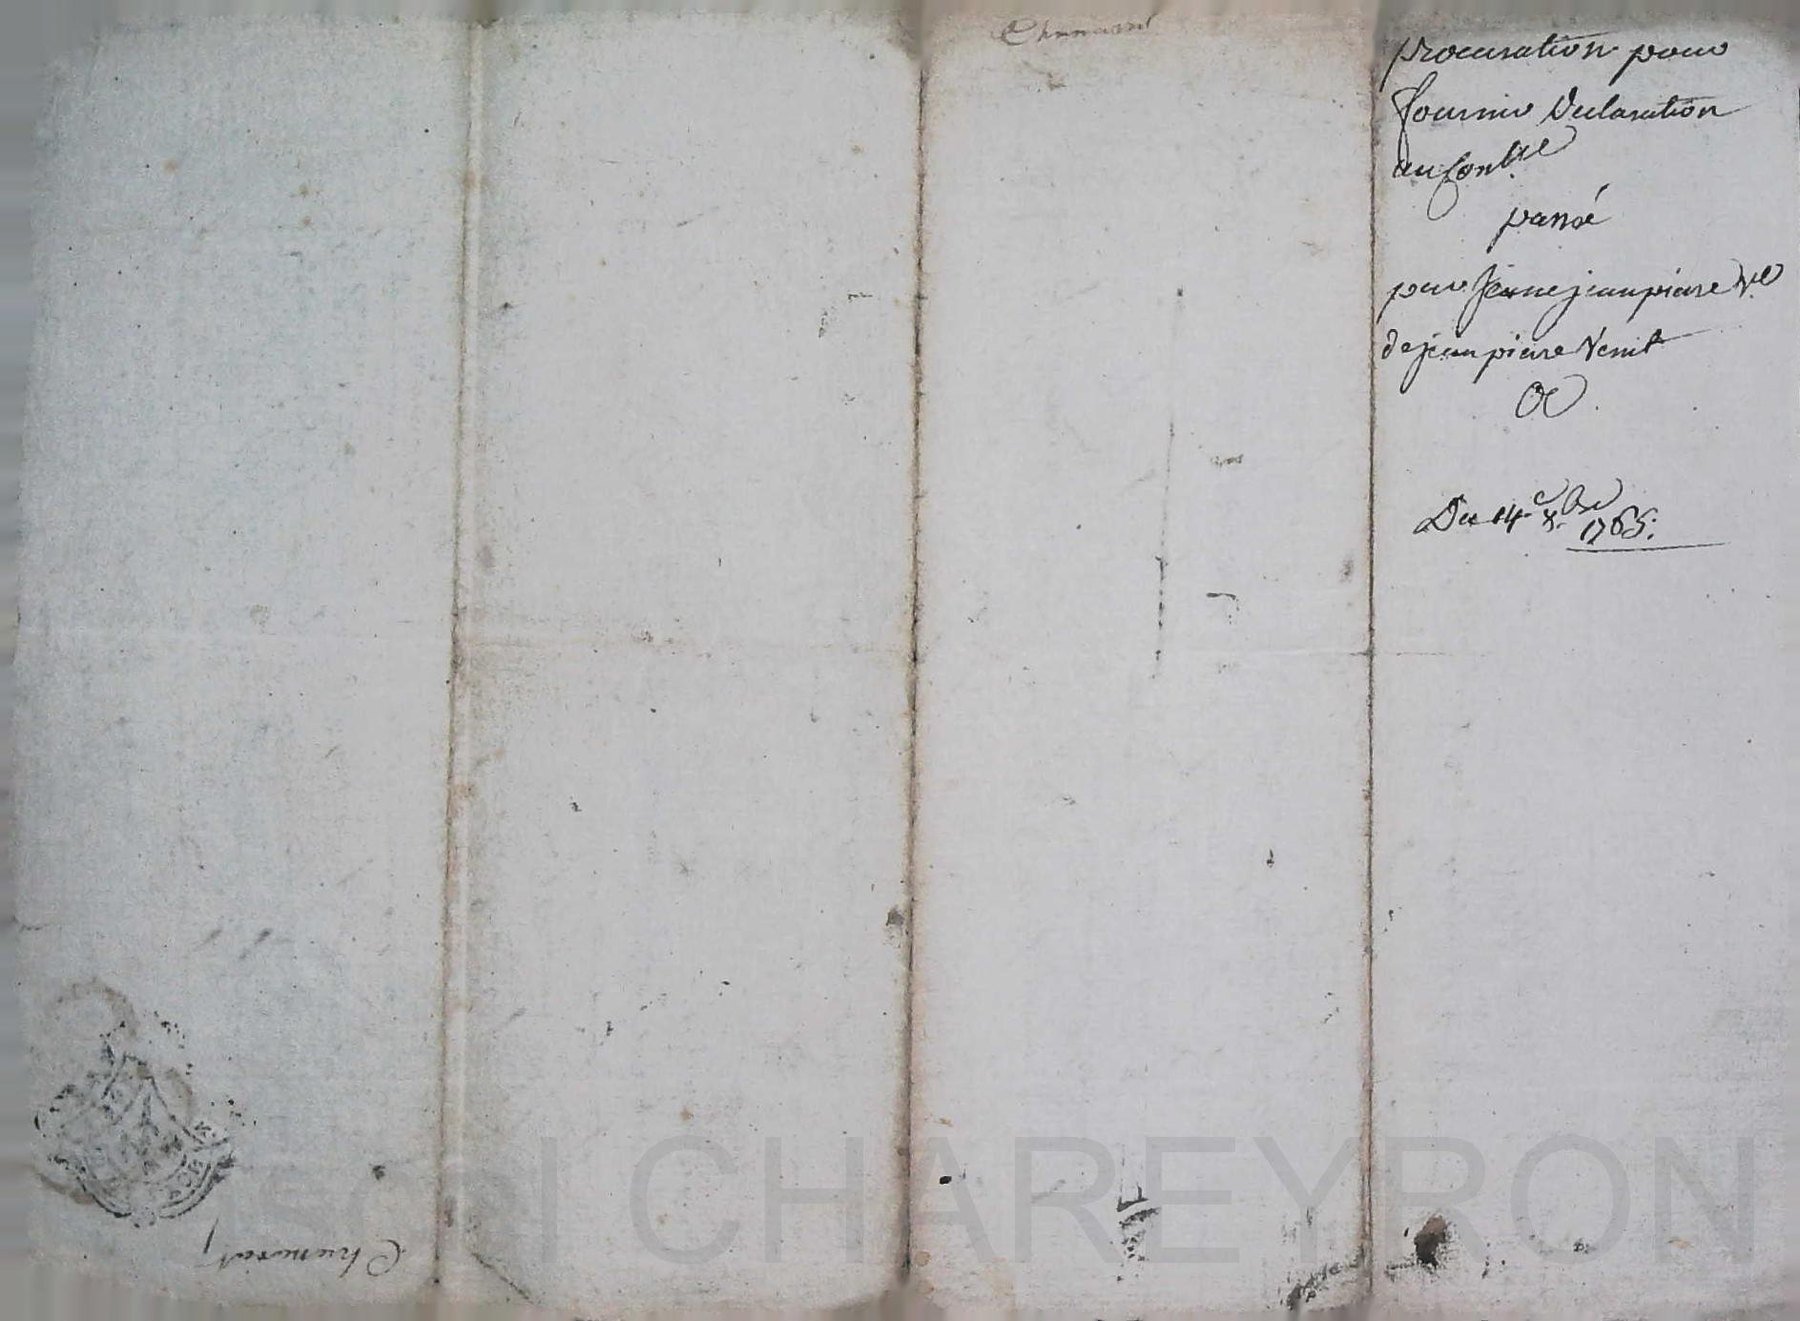 Chumarat
procuration pour
fournir Declaration
au Con.lle
passé
par Jeanne jeanpierre V.e
de jeanpierre Venit
Du 14.e X.bre
1765.
Chumarat
I CHAREYRON